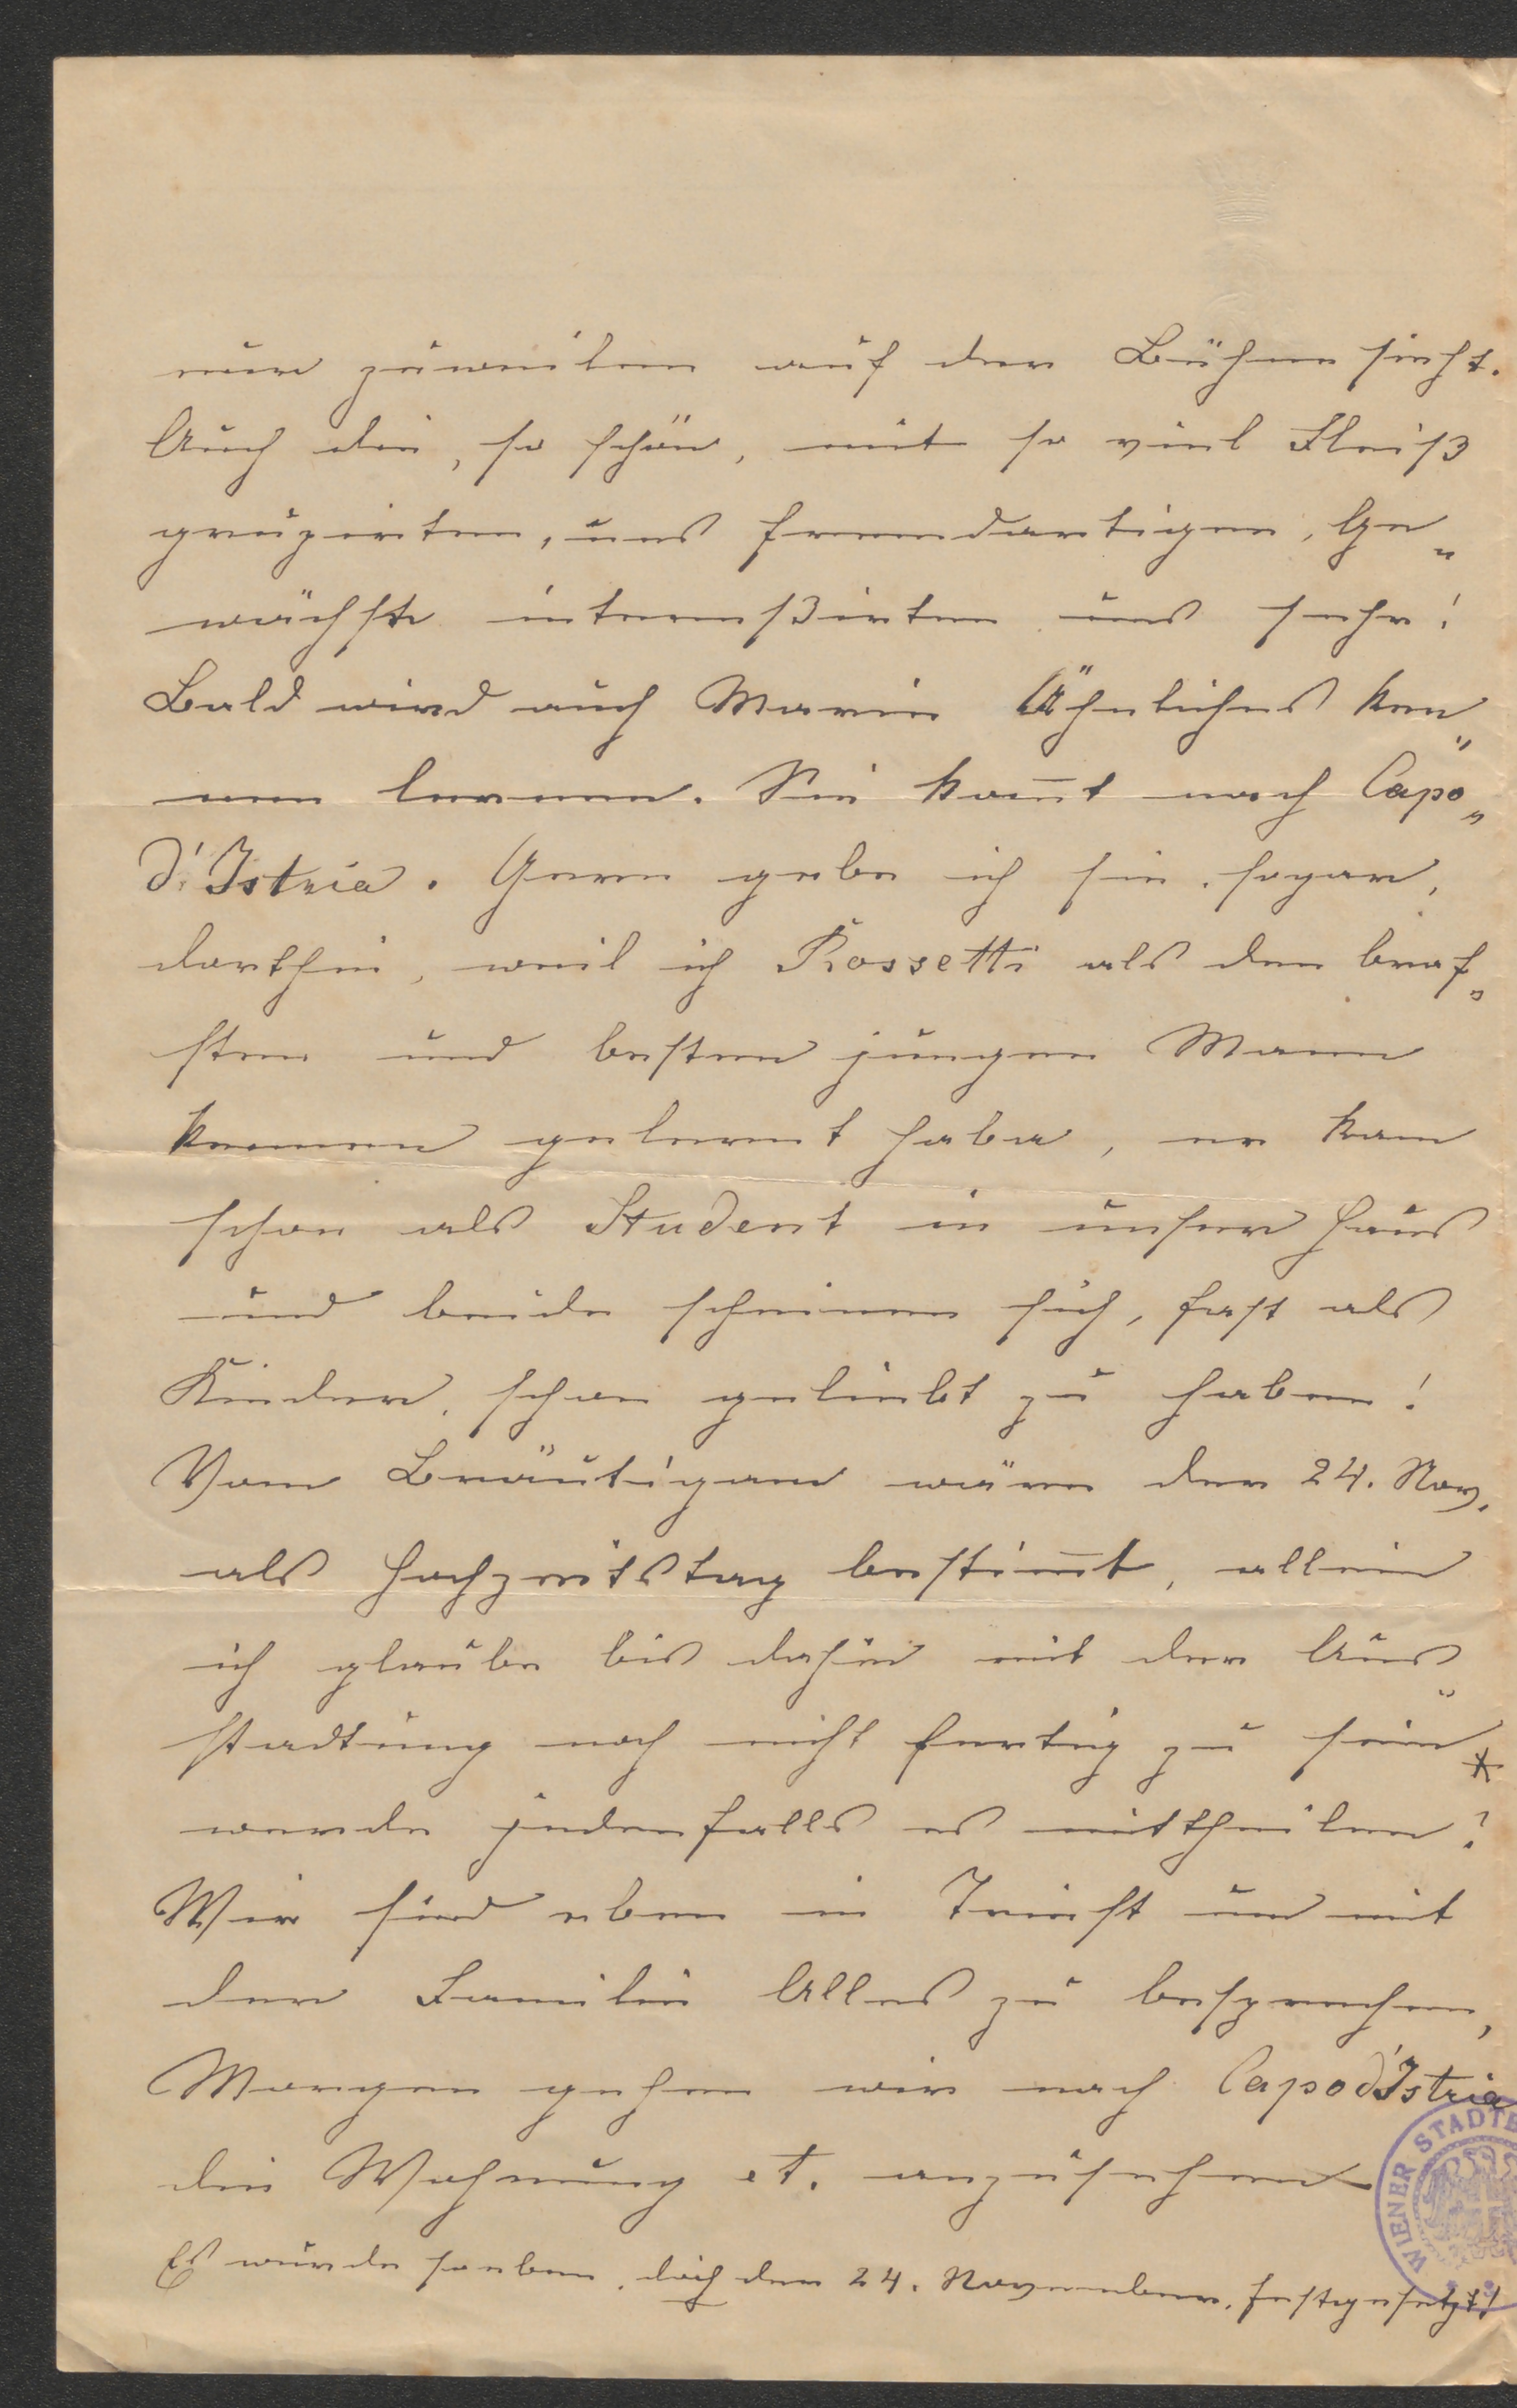 nur zuweilen auf der Bühne sieht.
Auch die, so schön, mit so viel Fleiß
grupirten, uns fremdartigen, Ge„
wächste interreßirten uns sehr!
Bald wird auch Marie Ähnliches ken„
nen lernen. Sie kom̅t nach Capo„
d'Istria. Gerne gebe ich sie, sogar,
dorthin, weil ich Rossetti als den brav„
sten und besten jungen Mann
kennen gelernt habe, er kam
schon als Student in unser Haus
und beide scheinen sich, fast als
Kinder, schon geliebt zu haben!
Vom Bräutigam wäre der 24. Nov.
als Hochzeitstag bestim̅t, allein
ich glaube bis dahin mit der Aus„
stadtung noch nicht fertig zu sein *
werde jedenfalls es mittheilen!
Wir sind eben in Triest um mit
der Familie Alles zu besprechen,
Morgen gehen wir nach Capod'Istria
die Wohnung et. anzusehen
Es wurde soeben, doch der 24. November, festgesetzt!
WIENER STADTB